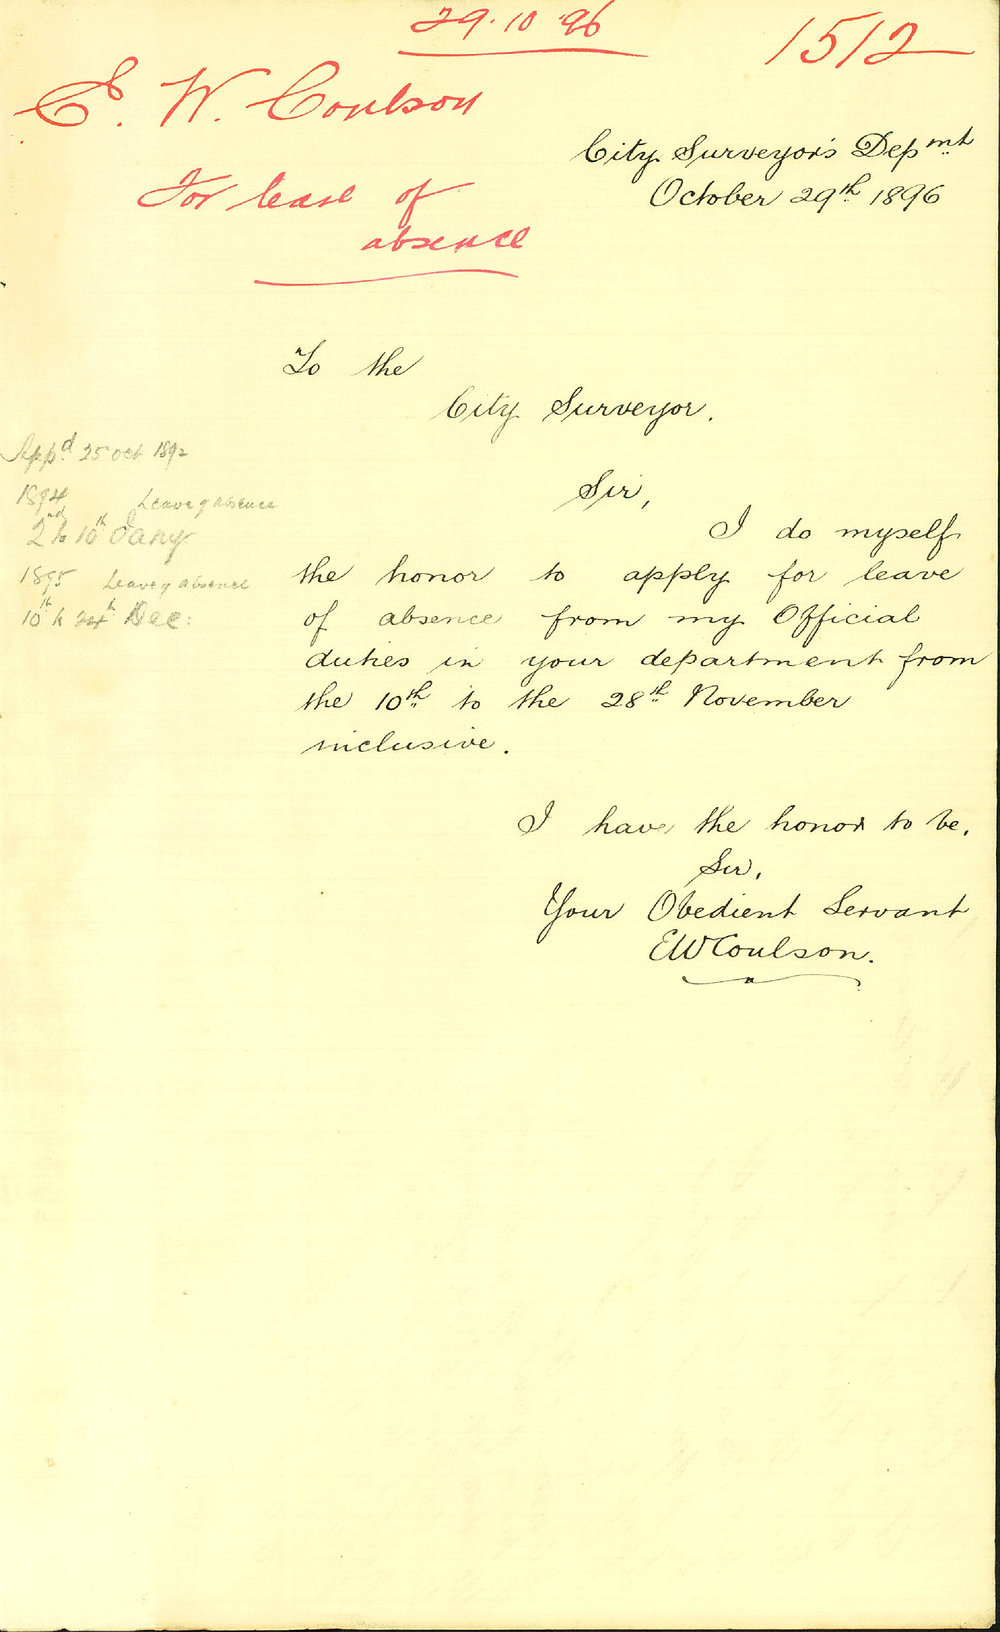 29.10.96
1512
E. W. Coulson
For leave of
absence
City Surveyor's Depmt
October 29th 1896
To the
City Surveyor.
Sir,
I do myself
the honor to apply for leave
of absence from my Official
duties in your department from
the 10th to the 28th November
inclusive.
I have the honor to be,
Sir,
Your Obedient Servant
EWCoulson.
Appd 25 Oct 1892
1894 Leave of absence
2nd to 16th Jany
1895 Leave of absence
10th to 24th Dec: